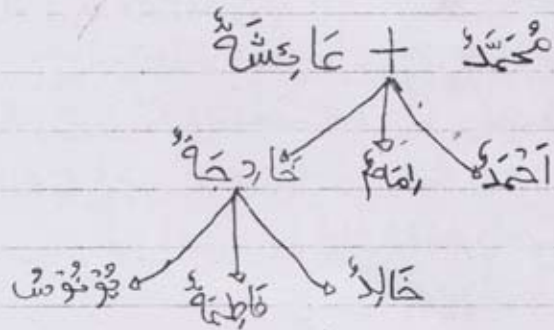 مُحَمَّدٌ + عَائِشَةٌ
اَحْمَدٌ رِمَةٌ خَادِجَةٌ
خَالِدٌ فَاطِمَةٌ يُوْنُوْسٌ